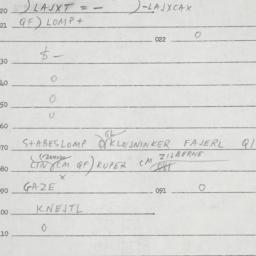 20 ) LAJXT = — )-LAJXCAX
21 QF) LOMP+
022 0
$ —
30
40 0
50 0
60 0
70 STABESLOMP KLEJNINKER FAJERL Q1
80 QF) KUPER CM ZILBERNE
90 GAZE 091 0
00 KNEJTL
10 0